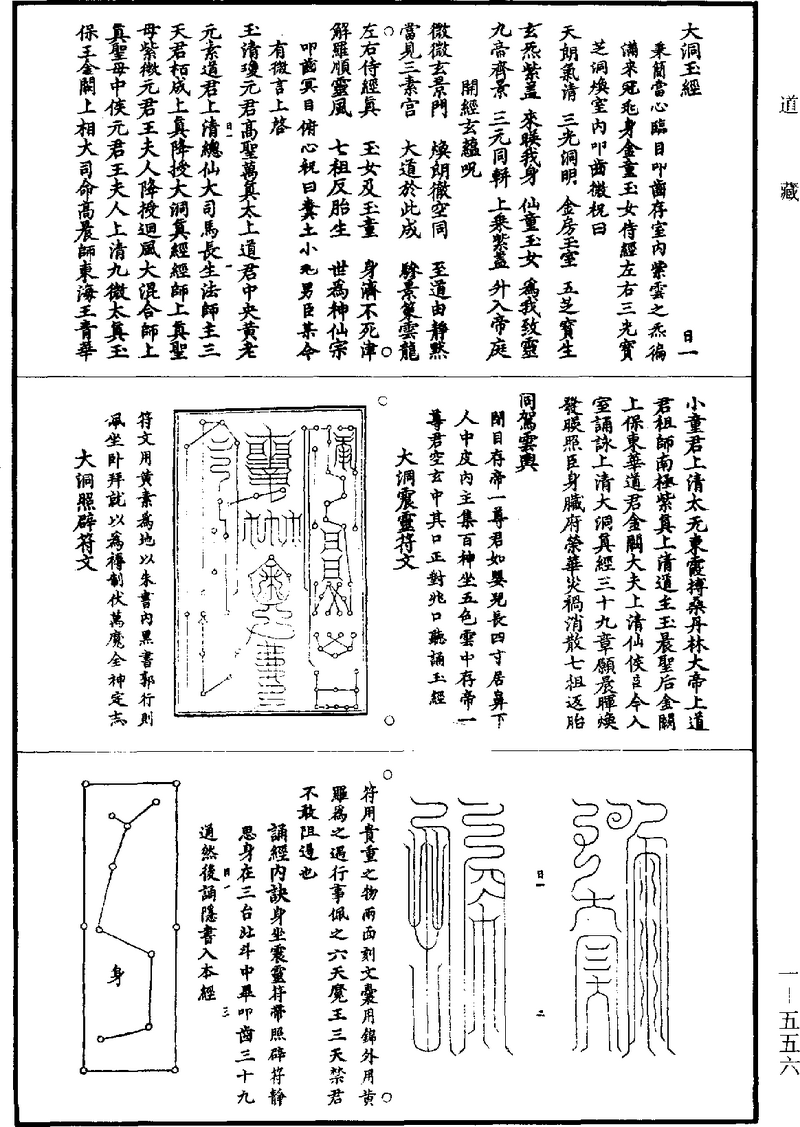 道藏
大洞玉經
日一
秉簡當心臨目叩齒存室內紫雲之炁徧
滿來冠兆身金童玉女侍經左右三光寶
芝洞煥室內叩齒微祝曰
天朗氣清　三光洞明　金房玉室　五芝寶生
玄炁紫蓋　來映我身　仙童玉女　為我致靈
九帝齊景　三元同軿　上乘紫蓋　升入帝庭
開經玄蘊呪
微微玄景門　煥朗徹空同　至道由靜默
當見三素宮　大道於此成　驂景策雲龍
左右侍經真　玉女及玉童　身濟不死津
解羅順靈風　七祖反胎生　世為神仙宗
叩齒冥目俯心祝曰糞土小兆男臣某今
有微言上啓
玉清瓊元君高聖萬真太上道君中央黃老
元素道君上清總仙大司馬長生法師主三
天君栢成上真降授大洞真經經師上真聖
母紫微元君王夫人降授迴風大混合師上
真聖母中侯元君王夫人上清九微太真玉
保王金闕上相大司命高晨師東海王青華
小童君上清太无東霞搏桑丹林大帝上道
君祖師南極紫真上清道主玉晨聖后金闕
上保東華道君金闕大夫上清仙侯臣今入
室誦詠上清大洞真經三十九章願晨暉煥
發映照臣身臟府榮華災禍消散七祖返胎
同駕雲輿
閉目存帝一尊君如嬰兒長四寸居鼻下
人中皮內主集百神坐五色雲中存帝一
尊君空玄中其口正對兆口聽誦玉經
大洞震靈符文
符文用黃素為地以朱書內黑書郭行則
佩坐臥拜就以為褥制伏萬魔全神定志
大洞照辟符文
日一　二
符用貴重之物兩面刻文囊用錦外用黃
羅為之遇行事佩之六天魔王三天禁君
不敢阻遏也
誦經內訣身坐震靈符帶照辟符靜
思身在三台北斗中畢叩齒三十九
通然後誦隱書入本經
日一　三
身
一—五五六